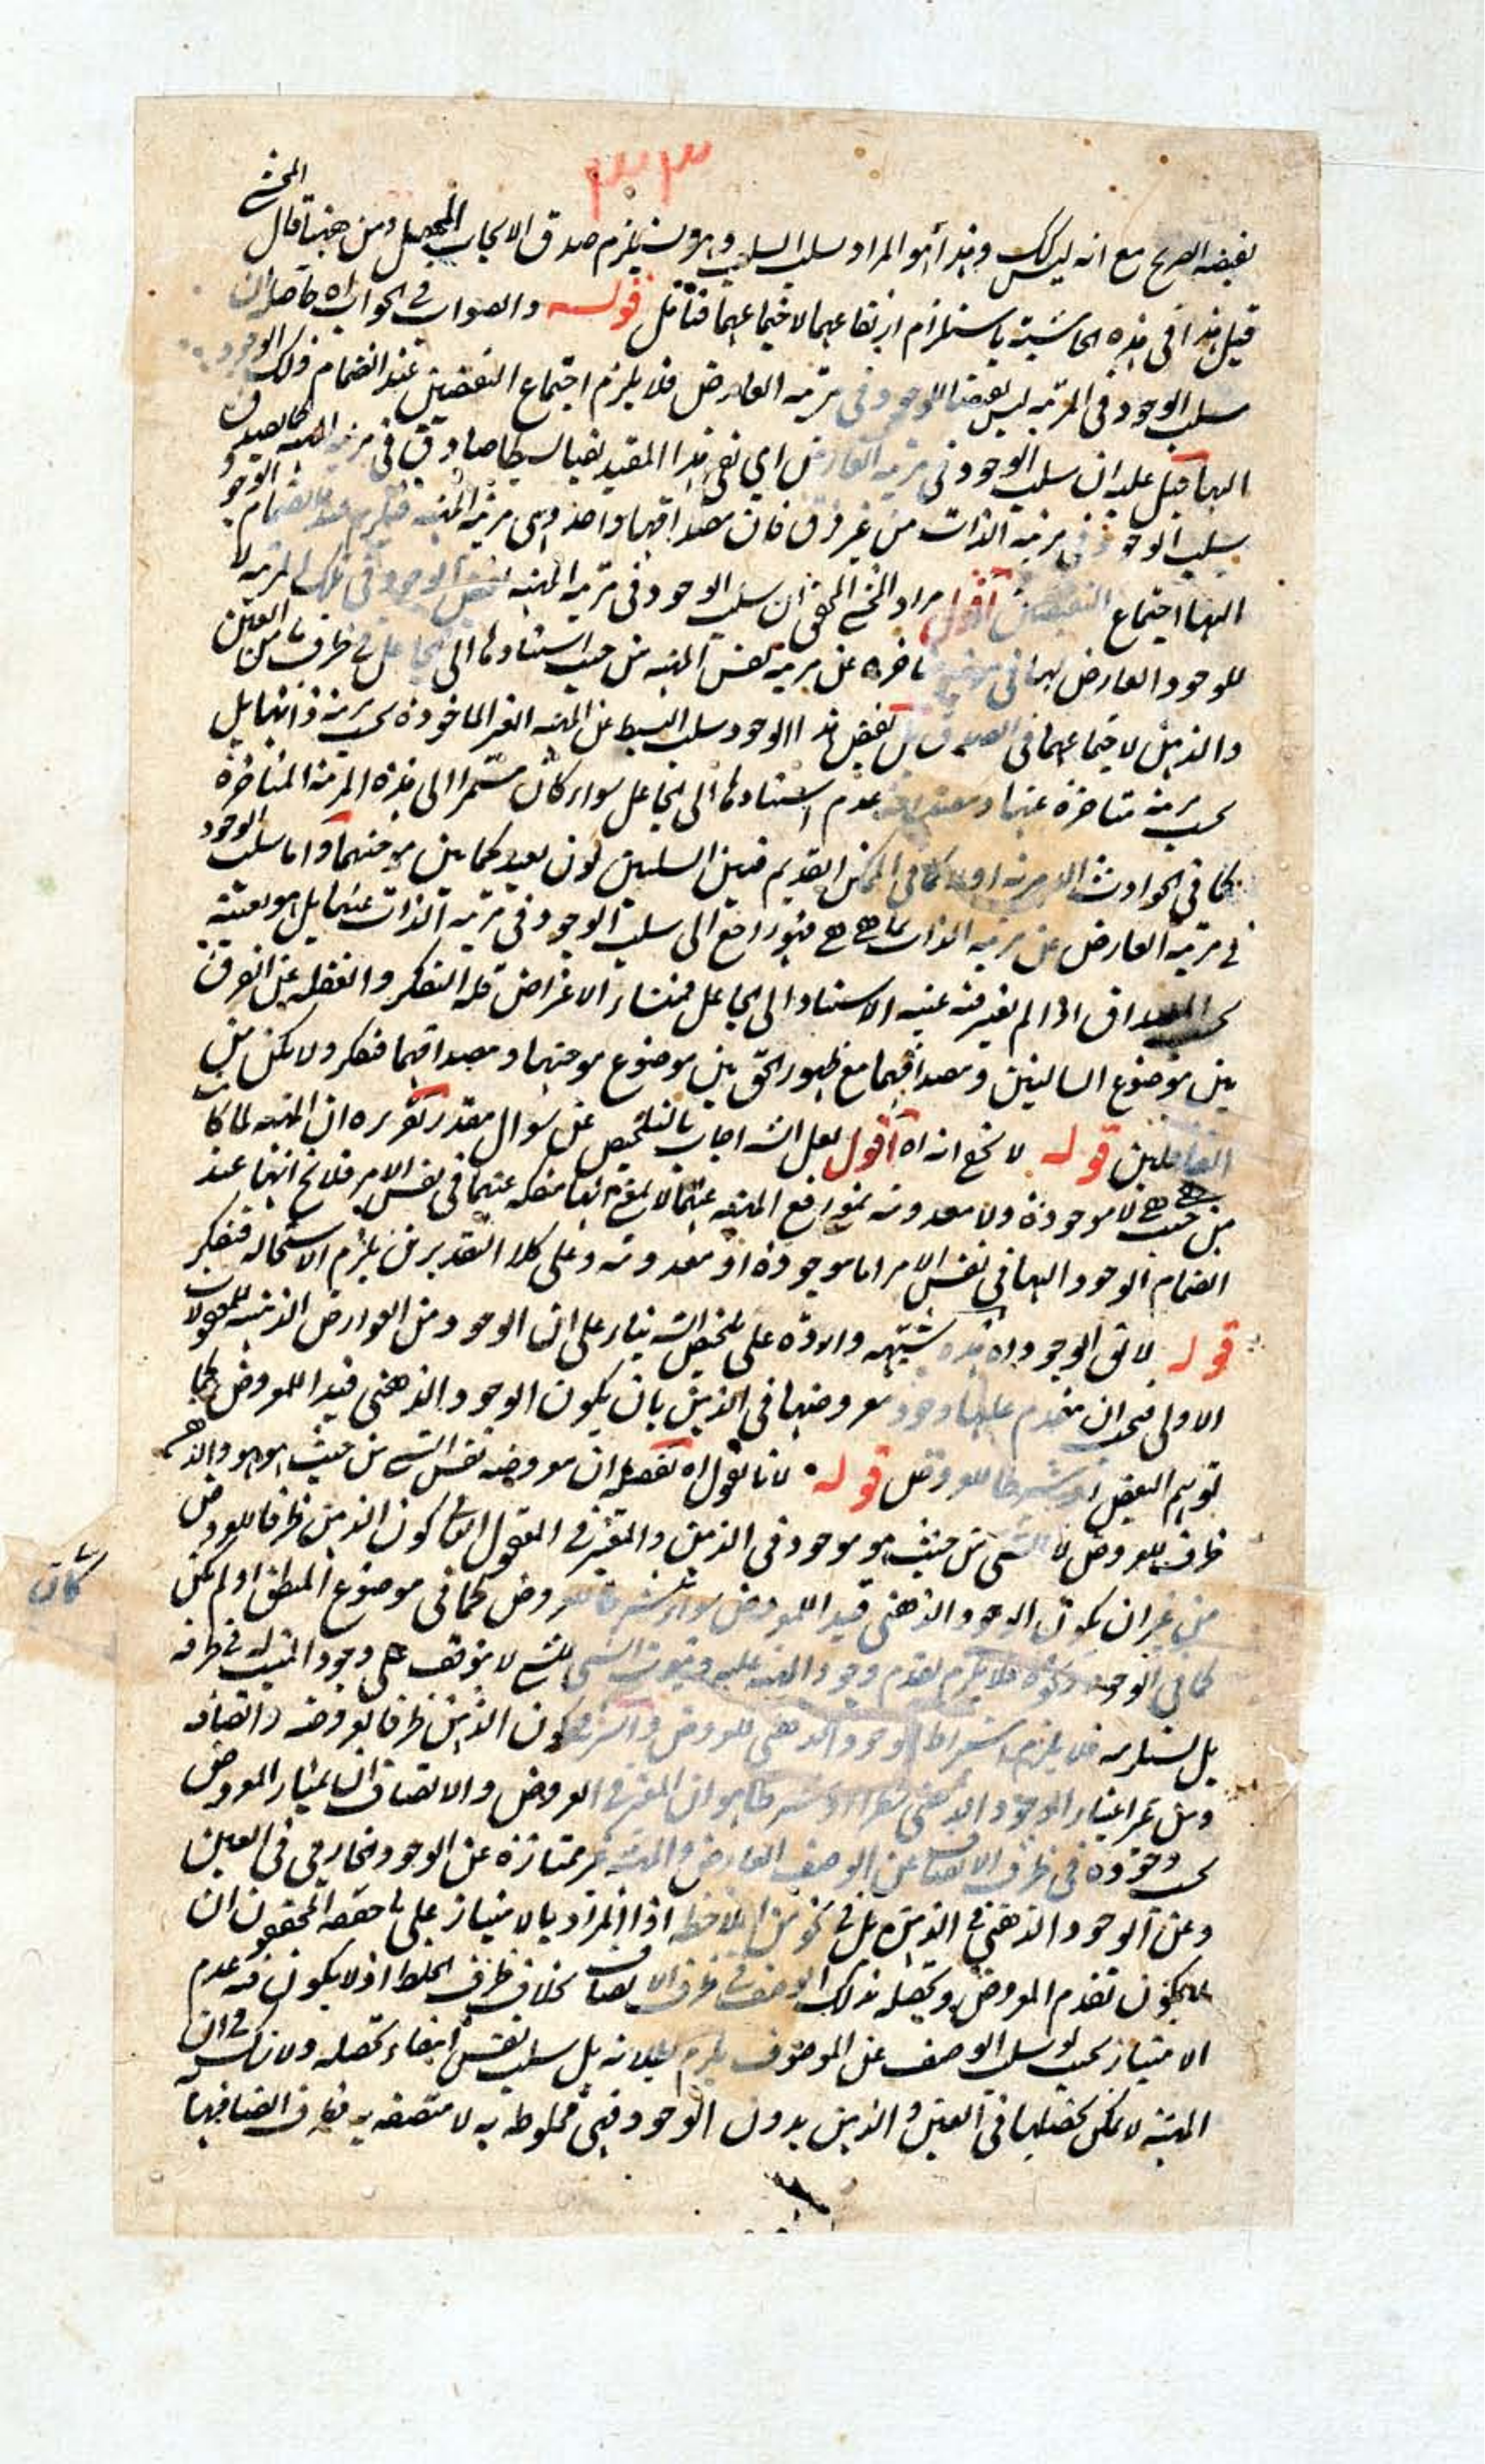 ٣٣
المحشي
نقيضه الصريح مع انه ليس كك وهذا هو المراد سلب السلب وهو يستلزم صدق الايجاب المحصل ومن ههنا قال
قيل هذا في هذه الحاشية باستلزام ارتفاعهما لاجتماعهما فتأمل قوله والصواب في الجواب اه حاصله ان
سلب الوجود في المرتبه ليس نقيضا للوجود في مرتبه العارض فلا يلزم اجتماع النقيضين عند انضمام ذلك الوجود
اليها قيل عليه ان سلب الوجود في مرتبه العارض اي نفى هذا المقيد نفيا بسيطا صادق في مرتبه المهيه كما يصدق
سلب الوجود في مرتبه الذات من غير فرق فان مصداقهما واحد وهي مرتبه المهيه فيلزم عند انضمام الوجود
اليها اجتماع النقيضين اقول مراد المحشي المحقق ان سلب الوجود في مرتبه المهيه نقيض الوجود في تلك المرتبه لا
للوجود العارض لها في مرتبه متاخره عن مرتبه نفس المهيه من حيث استنادها الى الجاعل في ظرف ما من العين
والذهن لاجتماعهما في الصدق بل نقيض هذا الوجود سلب البسيط عن المهيه الغير الماخوذه بحسب مرتبه ذاتها بل
بحسب مرتبه متاخرة عنها ومصداقه عدم استنادها الى الجاعل سواء كان مستمرا الى هذه المرتبه المتاخرة
كما في الحوادث اولا كما في الممكن القديم فبين السلبين بون بعيد كما بين مرتبتهما واما سلب الوجود
في مرتبه العارض عن مرتبه الذات بما هي هي فهو راجع الى سلب الوجود في مرتبه الذات عنها بل هو بعينه
بحسب المصداق اذا لم يعتبر فيه عينيه الاستناد الى الجاعل فمنشاء الاعتراض قله التفكر والغفله عن الفرق
بين موضوع السالبتين ومصداقهما مع ظهور الحق بين موضوع موجبتهما ومصداقهما فتفكر ولا تكن من
الغافلين قوله لا يخفى انه اه اقول لعل الشه اجاب بالتلخيص عن سوال مقدر تقريره ان المهيه لما كانت
من حيث هي هي لا موجودة ولا معدومه بمعنى رفع المهيه عنهما لا بمعنى انها منفكه عنهما في نفس الامر فلا يخ انها عند
انضمام الوجود اليها في نفس الامر اما موجودة او معدومه وعلى كلا التقديرين يلزم الاستحاله فتفكر
قوله لا يق الوجود اه هذه شبهه واردة على تلخيص الشه بناء على ان الوجود من العوارض الذهنيه للمعقولات
الاولى فيجب ان يتقدم عليها وجود معروضها في الذهن بان يكون الوجود الذهني قيدا للمعروض كما
توهم البعض او شرطا للعروض قوله لانا نقول اه تفصيله ان معروضه نفس الشي من حيث هو هو والذهن
ظرف للعروض لا الشي من حيث هو موجود في الذهن والمعتبر في المعقول الثاني كون الذهن ظرفا للعروض
من غير ان يكون الوجود الذهني قيدا للمعروض سواء كان شرطا للعروض كما في موضوع المنطق او لم يكن
كما في الوجود ونحوه فلا يلزم تقدم وجود المهيه عليه وثبوت الشي للشي لا يتوقف على وجود المثبت له في ظرفه
بل يستلزمه فلا يلزم اشتراط الوجود الذهني للعروض والسر في كون الذهن ظرفا لعروضه واتصافه
ومن غير اعتبار الوجود الذهني شطرا او شرطا هو ان المعتبر في العروض والاتصاف امتياز المعروض
بحسب وجوده في ظرف الاتصاف عن الوصف العارض والمهيه غير ممتازة عن الوجود الخارجي في العين
وعن الوجود الذهني في الذهن بل في نحو من الملاحظه اذ المراد بالامتياز على ما حققه المحققون ان
يكون تقدم المعروض وتحصله بذلك الوصف في ظرف الاتصاف بخلاف ظرف الخلط اذ لا يكون فيه عدم
الامتياز بحيث لو سلب الوصف عن الموصوف يلزم بطلانه بل سلب نفس انتفاء تحصله ولا شك في ان
المهيه لا يمكن تحصلها في العين والذهن بدون الوجود فهي مخلوطه به لا متصفه به فظرف اتصافها
كان